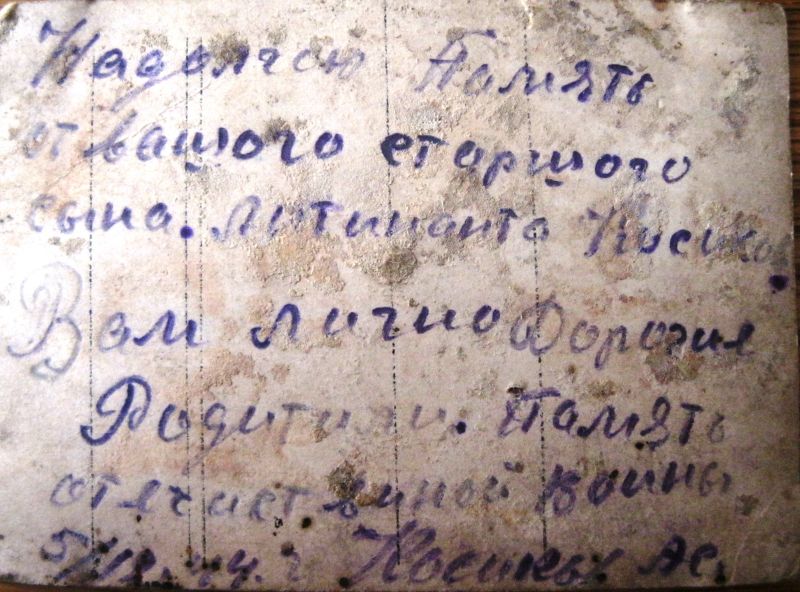 Надолгою Память
от вашого старшого
сына. Литинанта Косиков
Вам лично Дорогия
Родитили. Память
отячиственой воины
5/12.44.г Косиков АС.